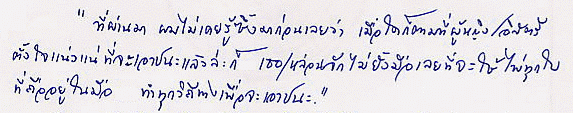 "ที่ผ่านมา ผมไม่เคยรู้ซึ้งมาก่อนเลยว่า เมื่อใดก็ตามที่ผู้หญิง/อิสตรี
ตั้งใจแน่วแน่ที่จะเอาชนะแล้วล่ะก็ เธอ/หล่อนจักไม่ยั้งมือเลยที่จะใช้ไพ่ทุกใบ
ที่ถืออยู่ในมือ ทำทุกวิถีทางเพื่อจะเอาชนะ."